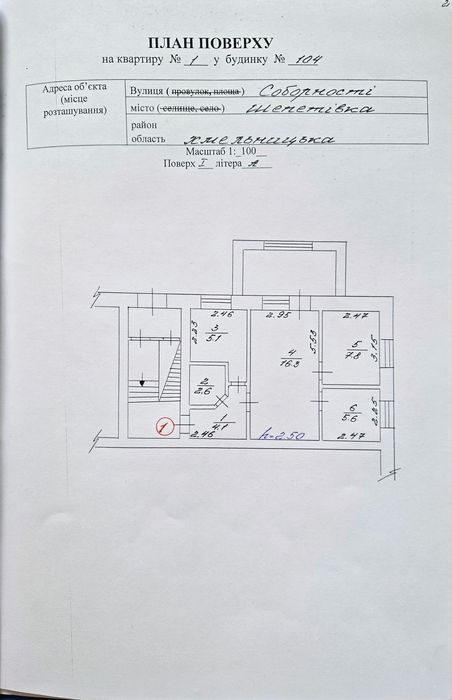 2
ПЛАН ПОВЕРХУ
на квартиру № 1 у будинку № 104
Адреса об’єкта
(місце
розташування)
Вулиця ( провулок, площа ) Соборності
місто ( селище, село ) Шепетівка
район
область Хмельницька
Масштаб 1:_100__
Поверх I літера А
2.46
2.95
2.47
2.23
3
5.1
5.53
4
16.3
5
7.8
3.15
2
2.6
1
4.1
2.46
6
5.6
2.25
2.47
1
h=2.50